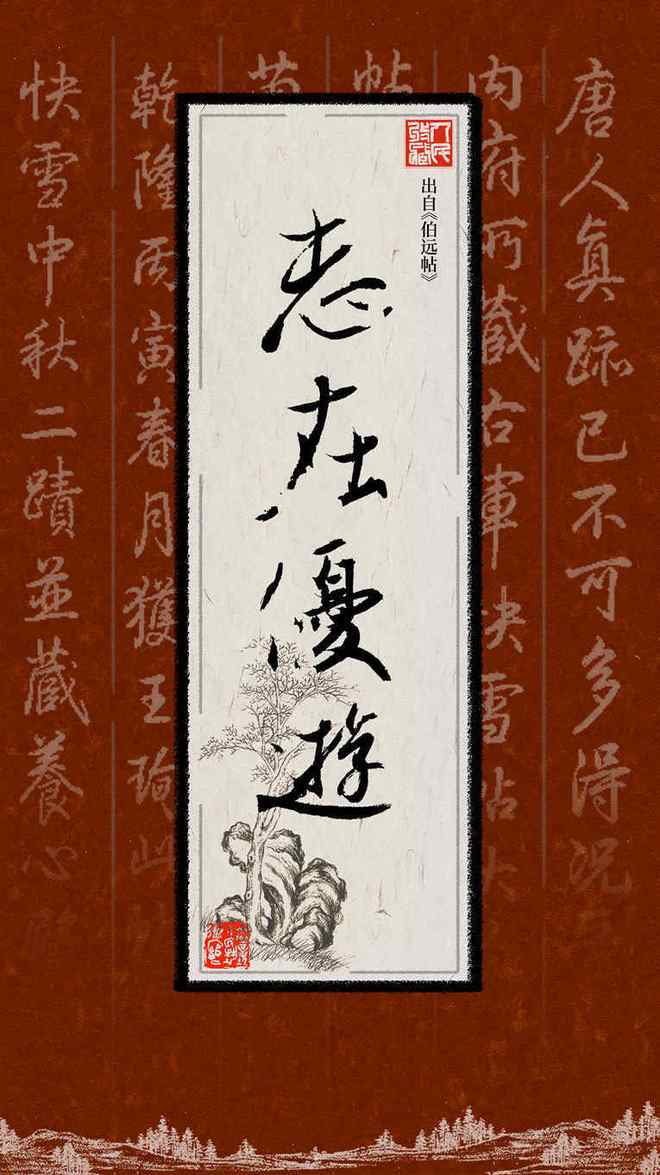 唐人真跡已不可多得況
内府所藏右軍快雪帖大
帖
乾隆丙寅春月獲王珣此
快雪中秋二蹟並藏養心
出自《伯远帖》
志在優遊